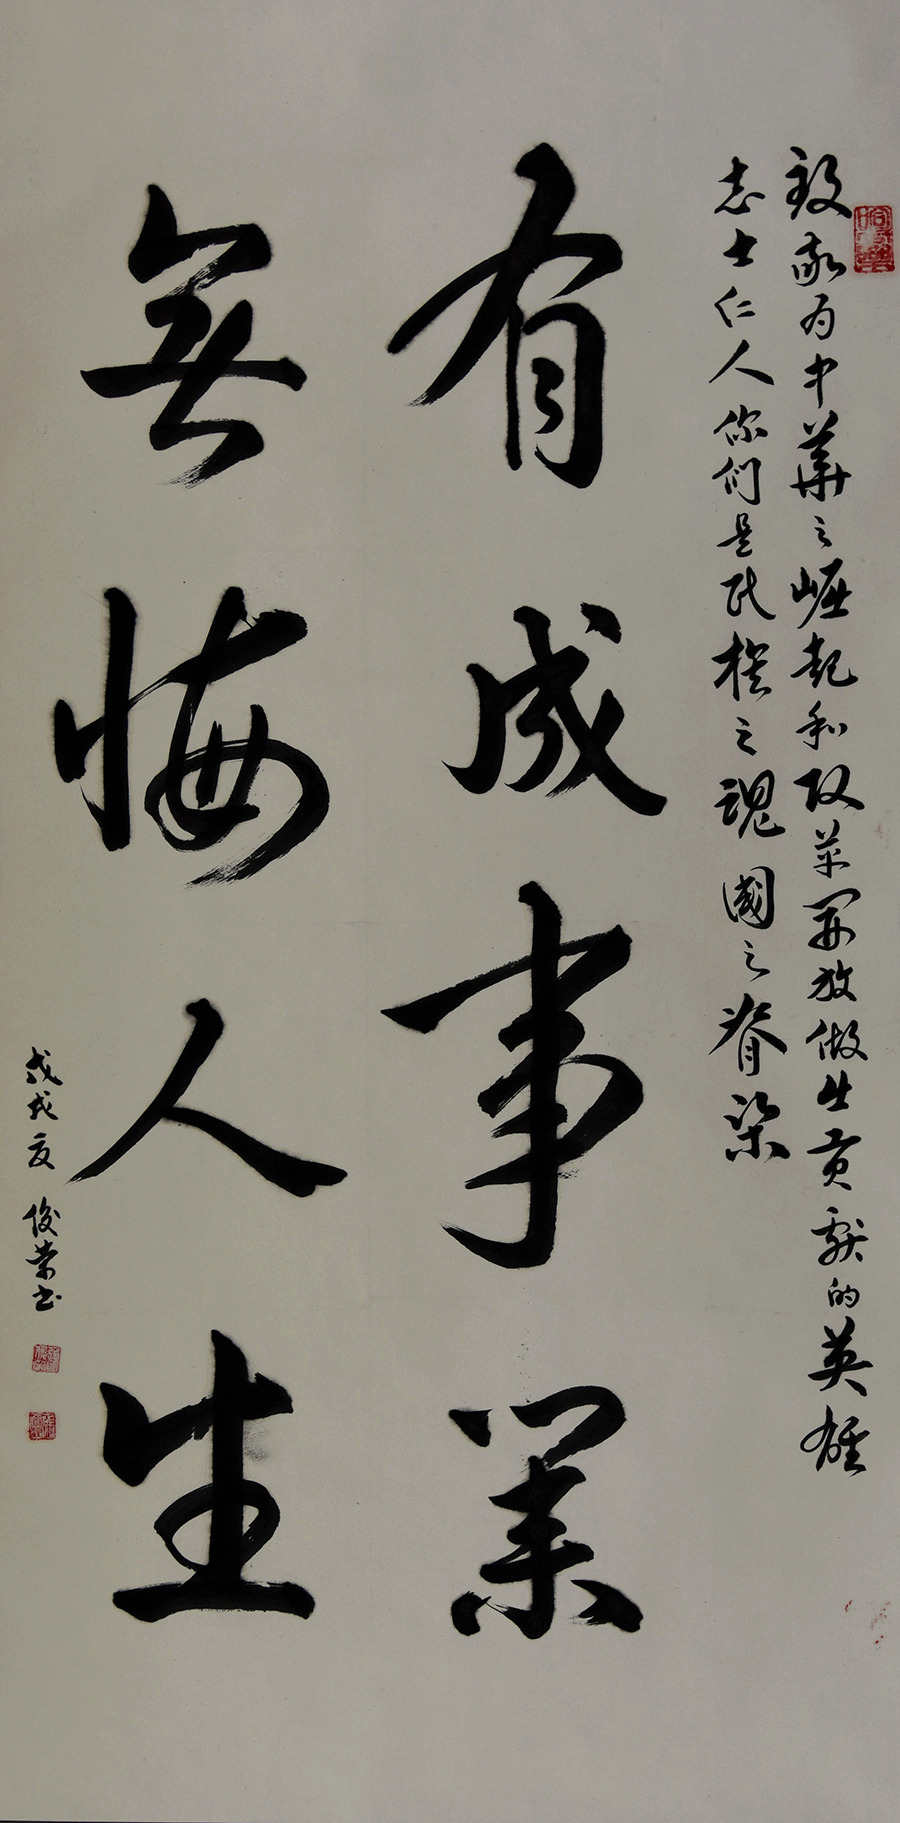 致敬为中華之崛起和改革開放做出贡献的英雄
志士仁人你们是民族之魂國之脊梁
有成事業
無悔人生
戊戌夏 俊荣书